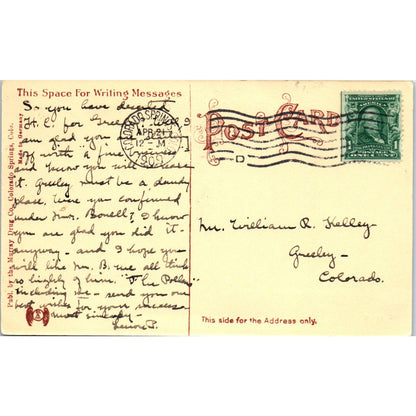 This Space For Writing Messages
So you have deserted
H. C. for Greeley. Well I
am glad you
it with a fine
and know you will
it. Greeley must be a dandy
place. Were you confirmed
under Mrs. Bonell? I know
you are glad you did it
anyway - and I hope you
will like Mr. B. we all think
so highly of him. "The Pollens"
including me - send you our
best wishes for your success
most sincerely -
Publ. by the Murray Drug Co., Colorado Springs, Colo.
Made in Germany
COLORADO SPRINGS
APR 21
12 - M
1909
COLO.
POST CARD
D
UNITED STATES
1
ONE CENT
Mr. William R. Kelley
Greeley -
Colorado.
This side for the Address only.